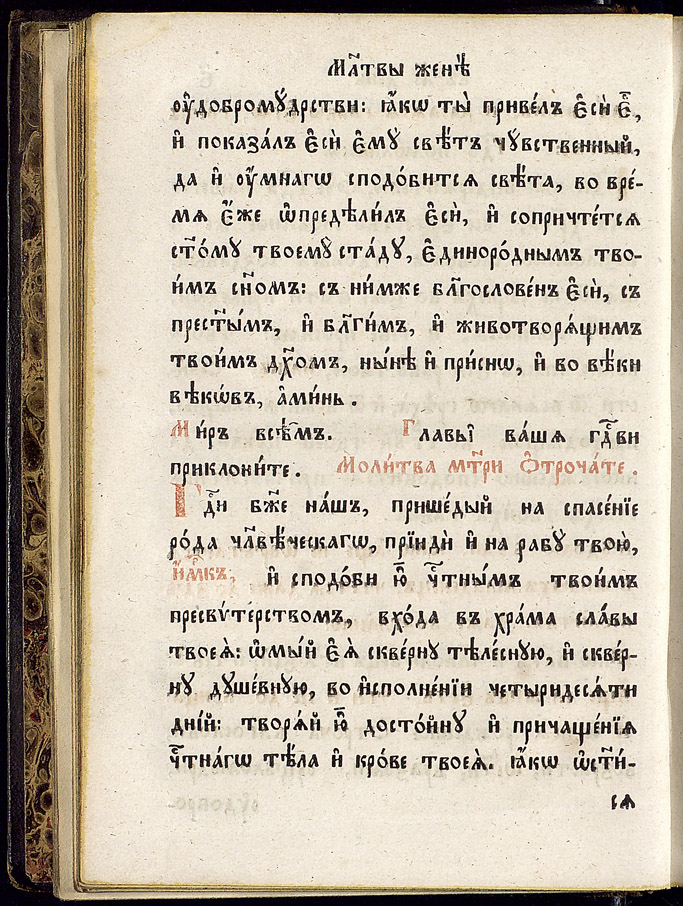 Мл҃твы женѣ̀
ᲂу҆добромꙋ́дрстви: ꙗ҆́кѡ ты̀ приве́лъ є҆сѝ є҆̀,
и҆ показа́лъ є҆сѝ є҆мꙋ̀ свѣ́тъ чꙋ́вственный,
да и҆ ᲂу҆́мнагѡ сподо́битсѧ свѣ́та, во вре́-
мѧ є҆́же ѡ҆предѣли́лъ є҆сѝ, и҆ сопричте́тсѧ
ст҃о́мꙋ твоемꙋ̀ ста́дꙋ, є҆диноро́днымъ тво-
и́мъ сн҃омъ: съ ни́мже бл҃гослове́нъ є҆сѝ, съ
прест҃ы́мъ, и҆ бл҃ги́мъ, и҆ животворѧ́щимъ
твои́мъ дх҃омъ, ны́нѣ и҆ при́снѡ, и҆ во вѣ́ки
вѣкѡ́въ, а҆ми́нь.
Ми́ръ всѣ̑мъ. Главы̑ ва́шѧ гдⷭ҇ви
приклони́те. Моли́тва мт҃ри ѻ҆троча́те.
Гдⷭ҇и бж҃е на́шъ, прише́дый на спасе́нїе
ро́да чл҃вѣ́ческагѡ, прїидѝ и҆ на рабꙋ̀ твою̀,
и҆́м҃къ, и҆ сподо́би ю҆̀ чⷭ҇тны́мъ твои́мъ
пресвѵ́терствомъ, вхо́да въ хра́ма сла́вы
твоеѧ̀: ѡ҆мы́й є҆ѧ̀ скве́рнꙋ тѣле́снꙋю, и҆ скве́р-
нꙋ дꙋше́внꙋю, во и҆сполне́нїи четыридесѧ́ти
дні́й: творѧ́й ю҆̀ досто́йнꙋ и҆ причаще́нїѧ
чⷭ҇тна́гѡ тѣ́ла и҆ кро́ве твоеѧ̀. ꙗ҆́кѡ ѡ҆ст҃и́-
сѧ